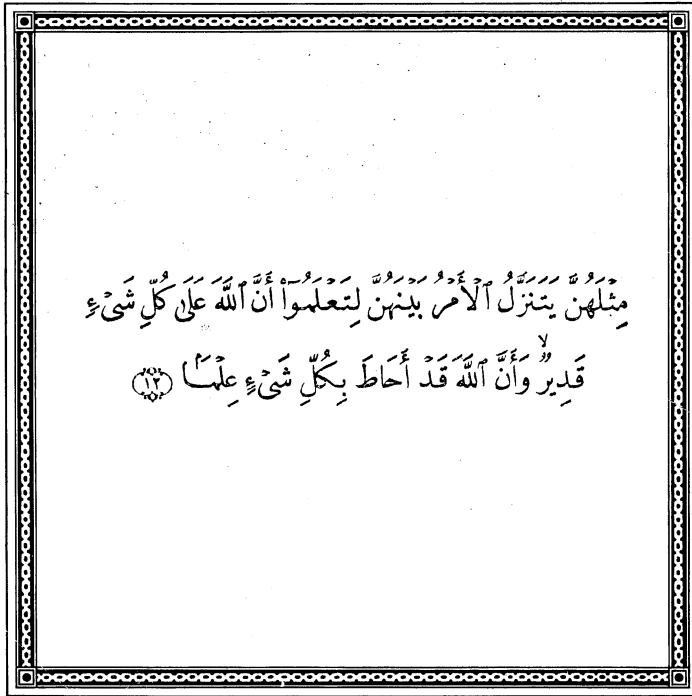 مِثْلَهُنَّ يَتَنَزَّلُ ٱلْأَمْرُ بَيْنَهُنَّ لِتَعْلَمُوٓا۟ أَنَّ ٱللَّهَ عَلَىٰ كُلِّ شَىْءٍ
قَدِيرٌۙ وَأَنَّ ٱللَّهَ قَدْ أَحَاطَ بِكُلِّ شَىْءٍ عِلْمًۢا ﴿١٢﴾